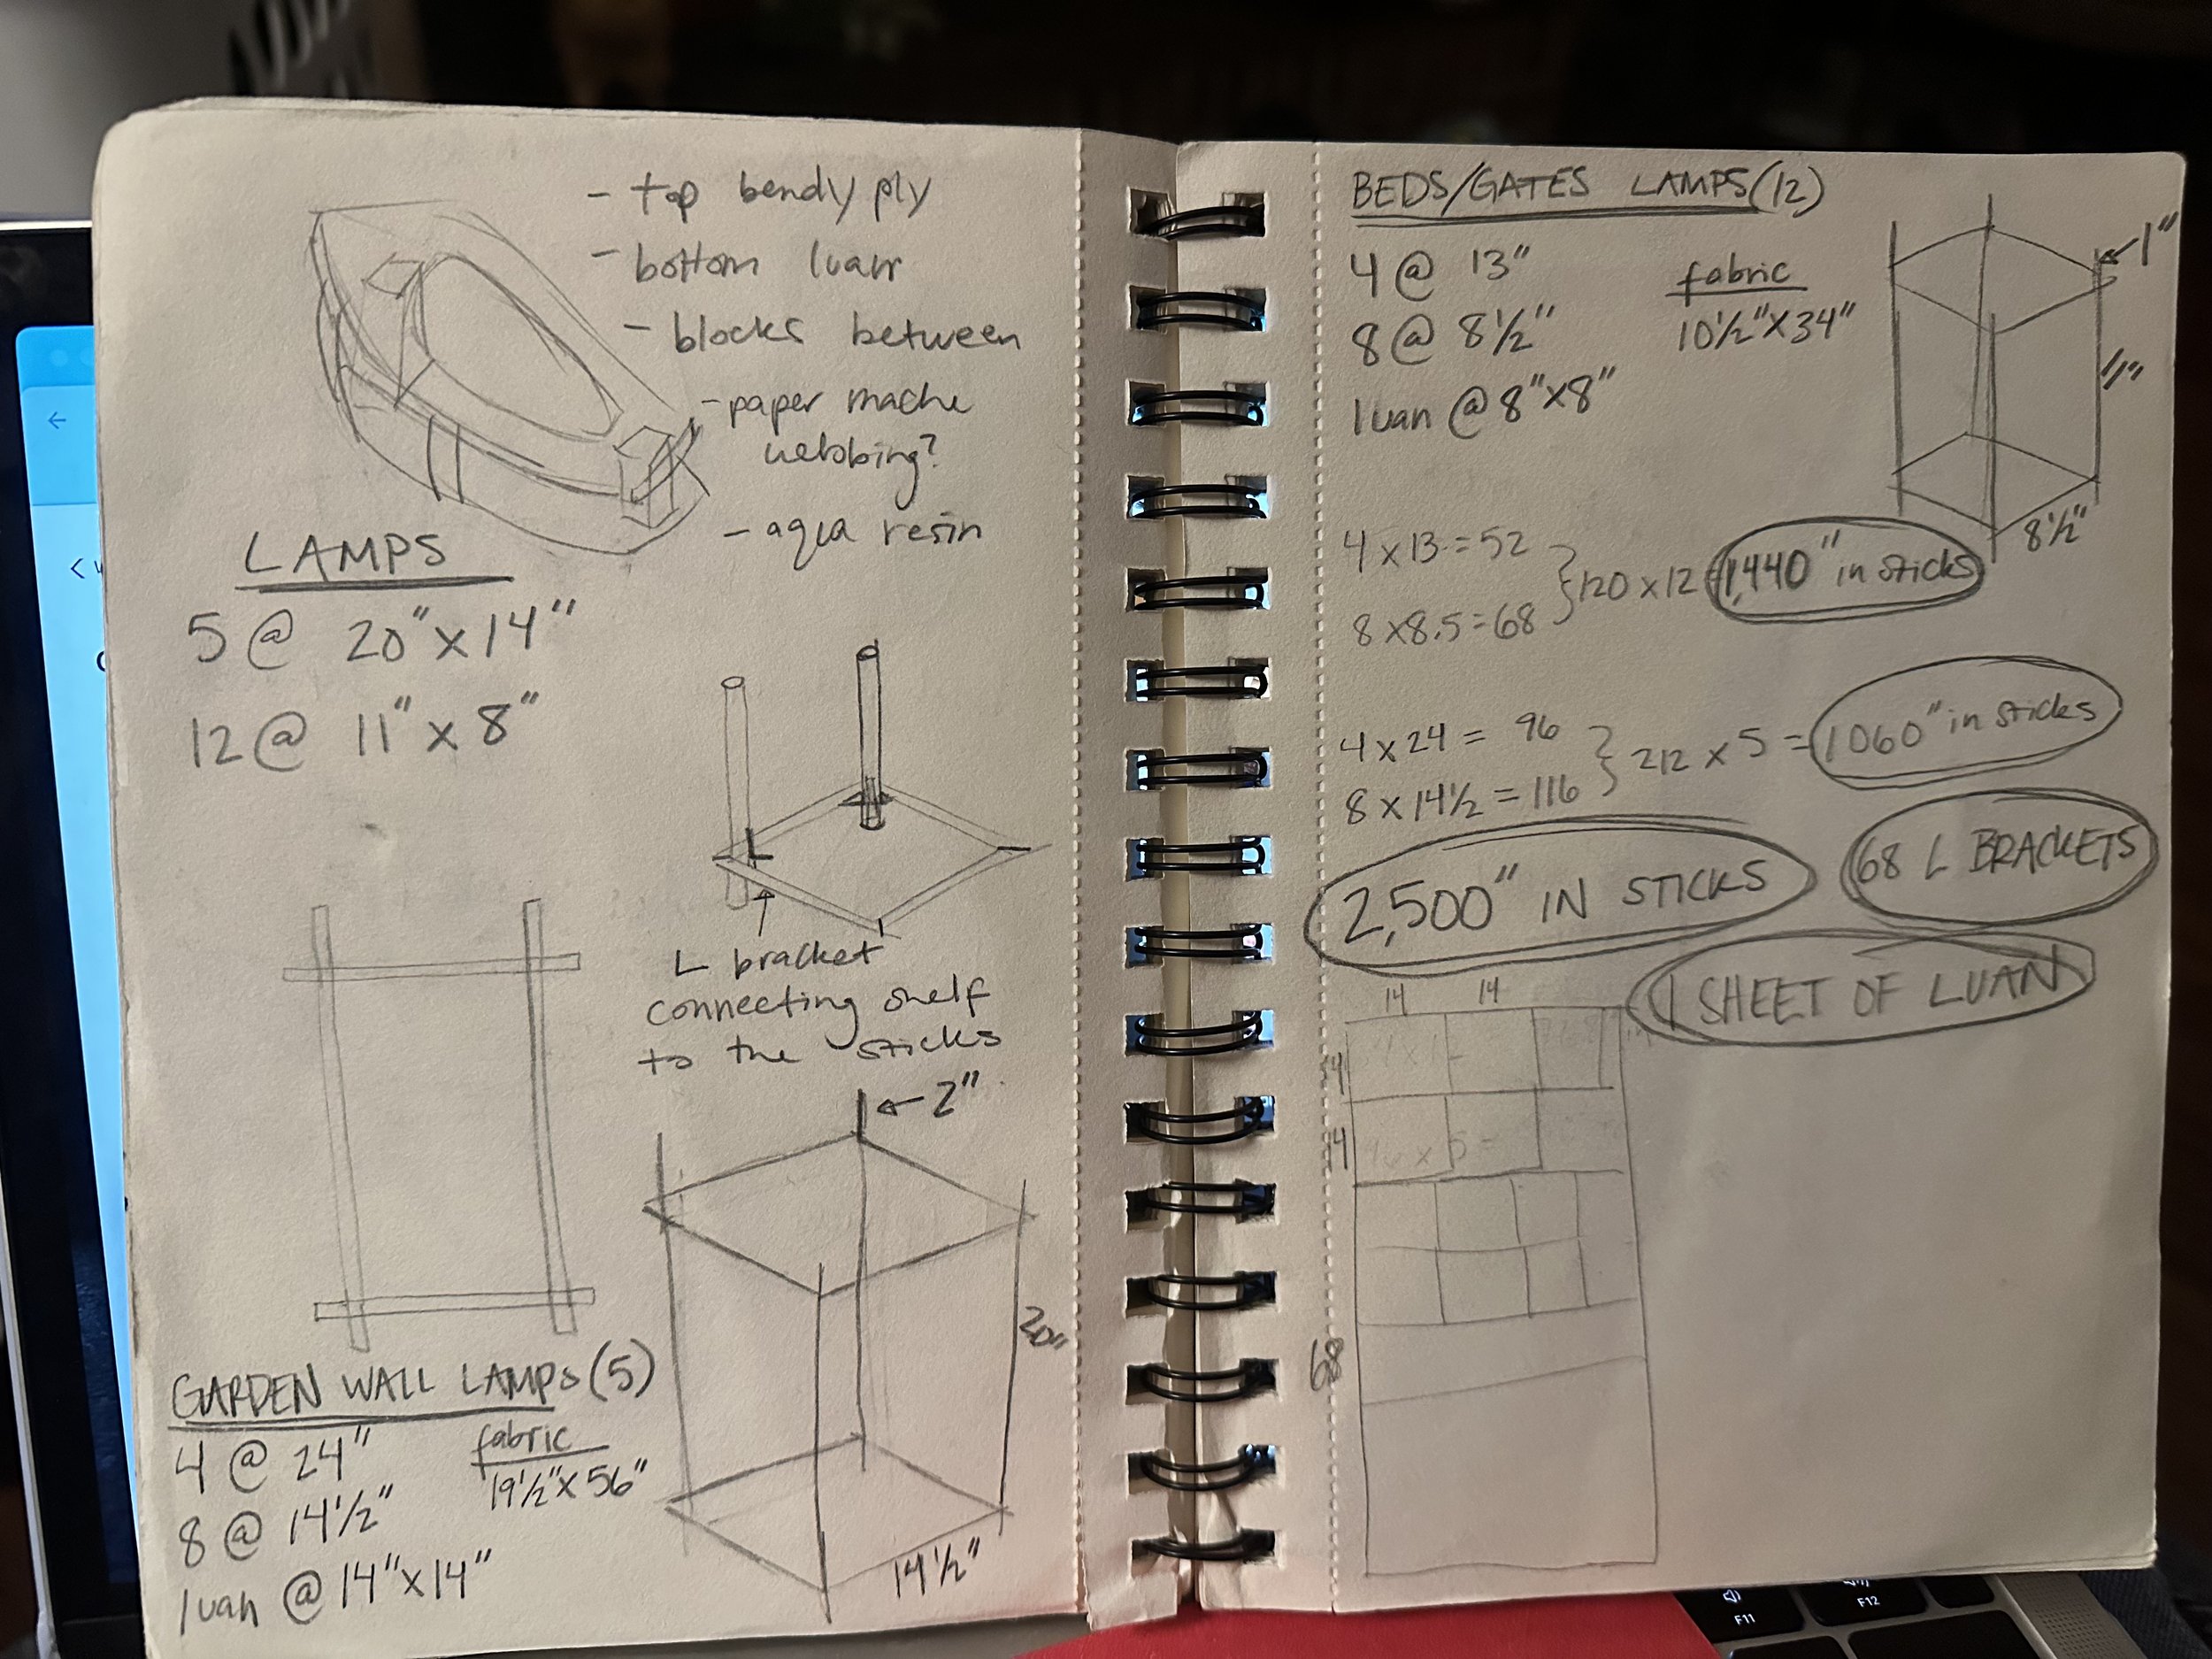 - top bendy ply
- bottom luan
- blocks between
- paper mache
webbing?
- aqua resin
LAMPS
5 @ 20" x 14"
12 @ 11" x 8"
L bracket
connecting shelf
to the sticks
2"
20"
14½"
GARDEN WALL LAMPS (5)
4 @ 24"
8 @ 14½"
luan @ 14" x 14"
fabric
19½" x 56"
BEDS/GATES LAMPS (12)
4 @ 13"
8 @ 8½"
luan @ 8" x 8"
fabric
10½" x 34"
1"
11"
8½"
4 x 13 = 52
8 x 8.5 = 68
} 120 x 12 = 1,440" in sticks
4 x 24 = 96
8 x 14½ = 116
} 212 x 5 = 1060" in sticks
2,500" IN STICKS
68 L BRACKETS
1 SHEET OF LUAN
14 14
14
14
68
F11
F12